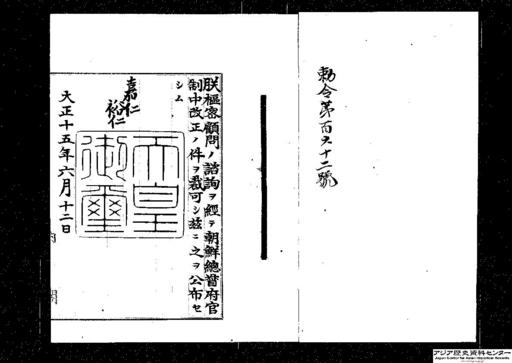 勅令第百六十二號
朕樞密顧問ノ諮詢ヲ經テ朝鮮總督府官
制中改正ノ件ヲ裁可シ茲ニ之ヲ公布セ
シム
嘉仁
裕仁
天皇
御璽
大正十五年六月十二日
内
閣
アジア歴史資料センター
Japan Center for Asian Historical Records